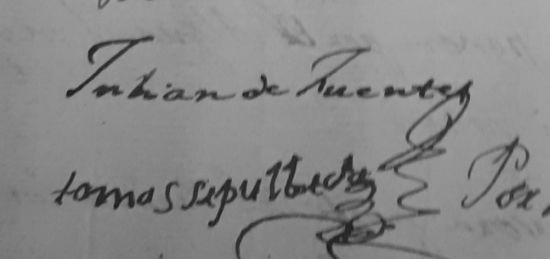 Julian de Fuentes
tomas sepulbeda Por